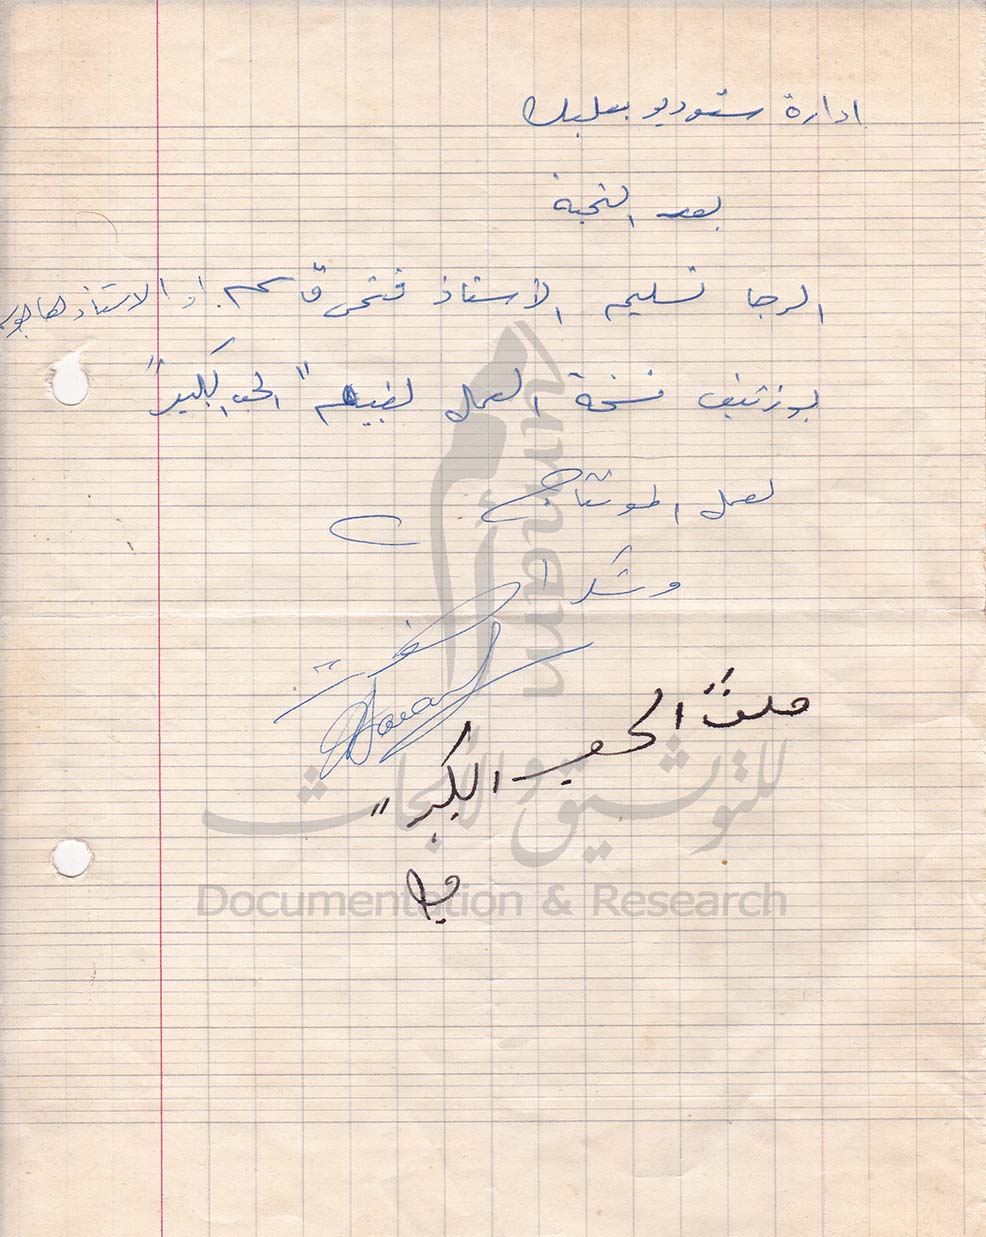 ادارة ستوديو بعلبك
بعد التحية
الرجا تسليم الأستاذ فتحي قاسم او الاستاذ
نسخة العمل لفيلم "الحب الكبير"
لعمل المونتاج
وشكرا
ملف الحب الكبير"
Umam
للتوثيق والأبحاث
Documentation & Research